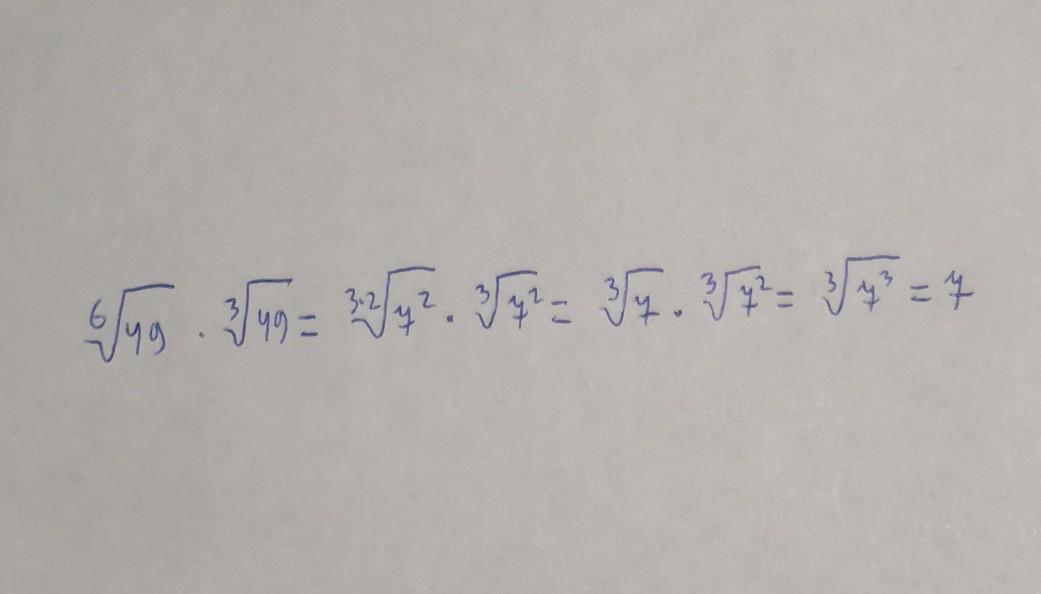 ⁶√49 · ³√49 = ³·²√7² · ³√7² = ³√7 · ³√7² = ³√7³ = 7